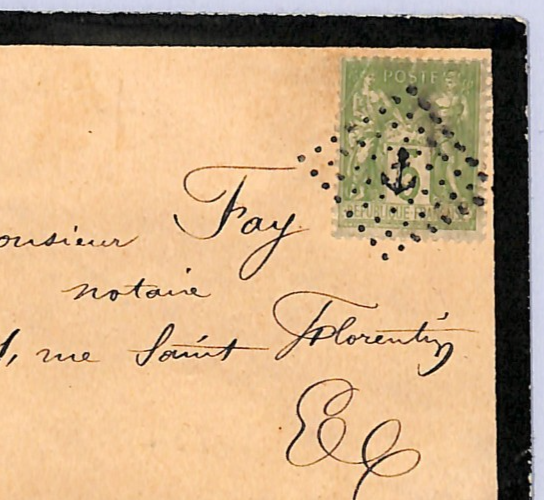 POSTE
5
REPUBLIQUE FRANÇAISE
onsieur Fay
notaire
rue Saint Florentin
EC